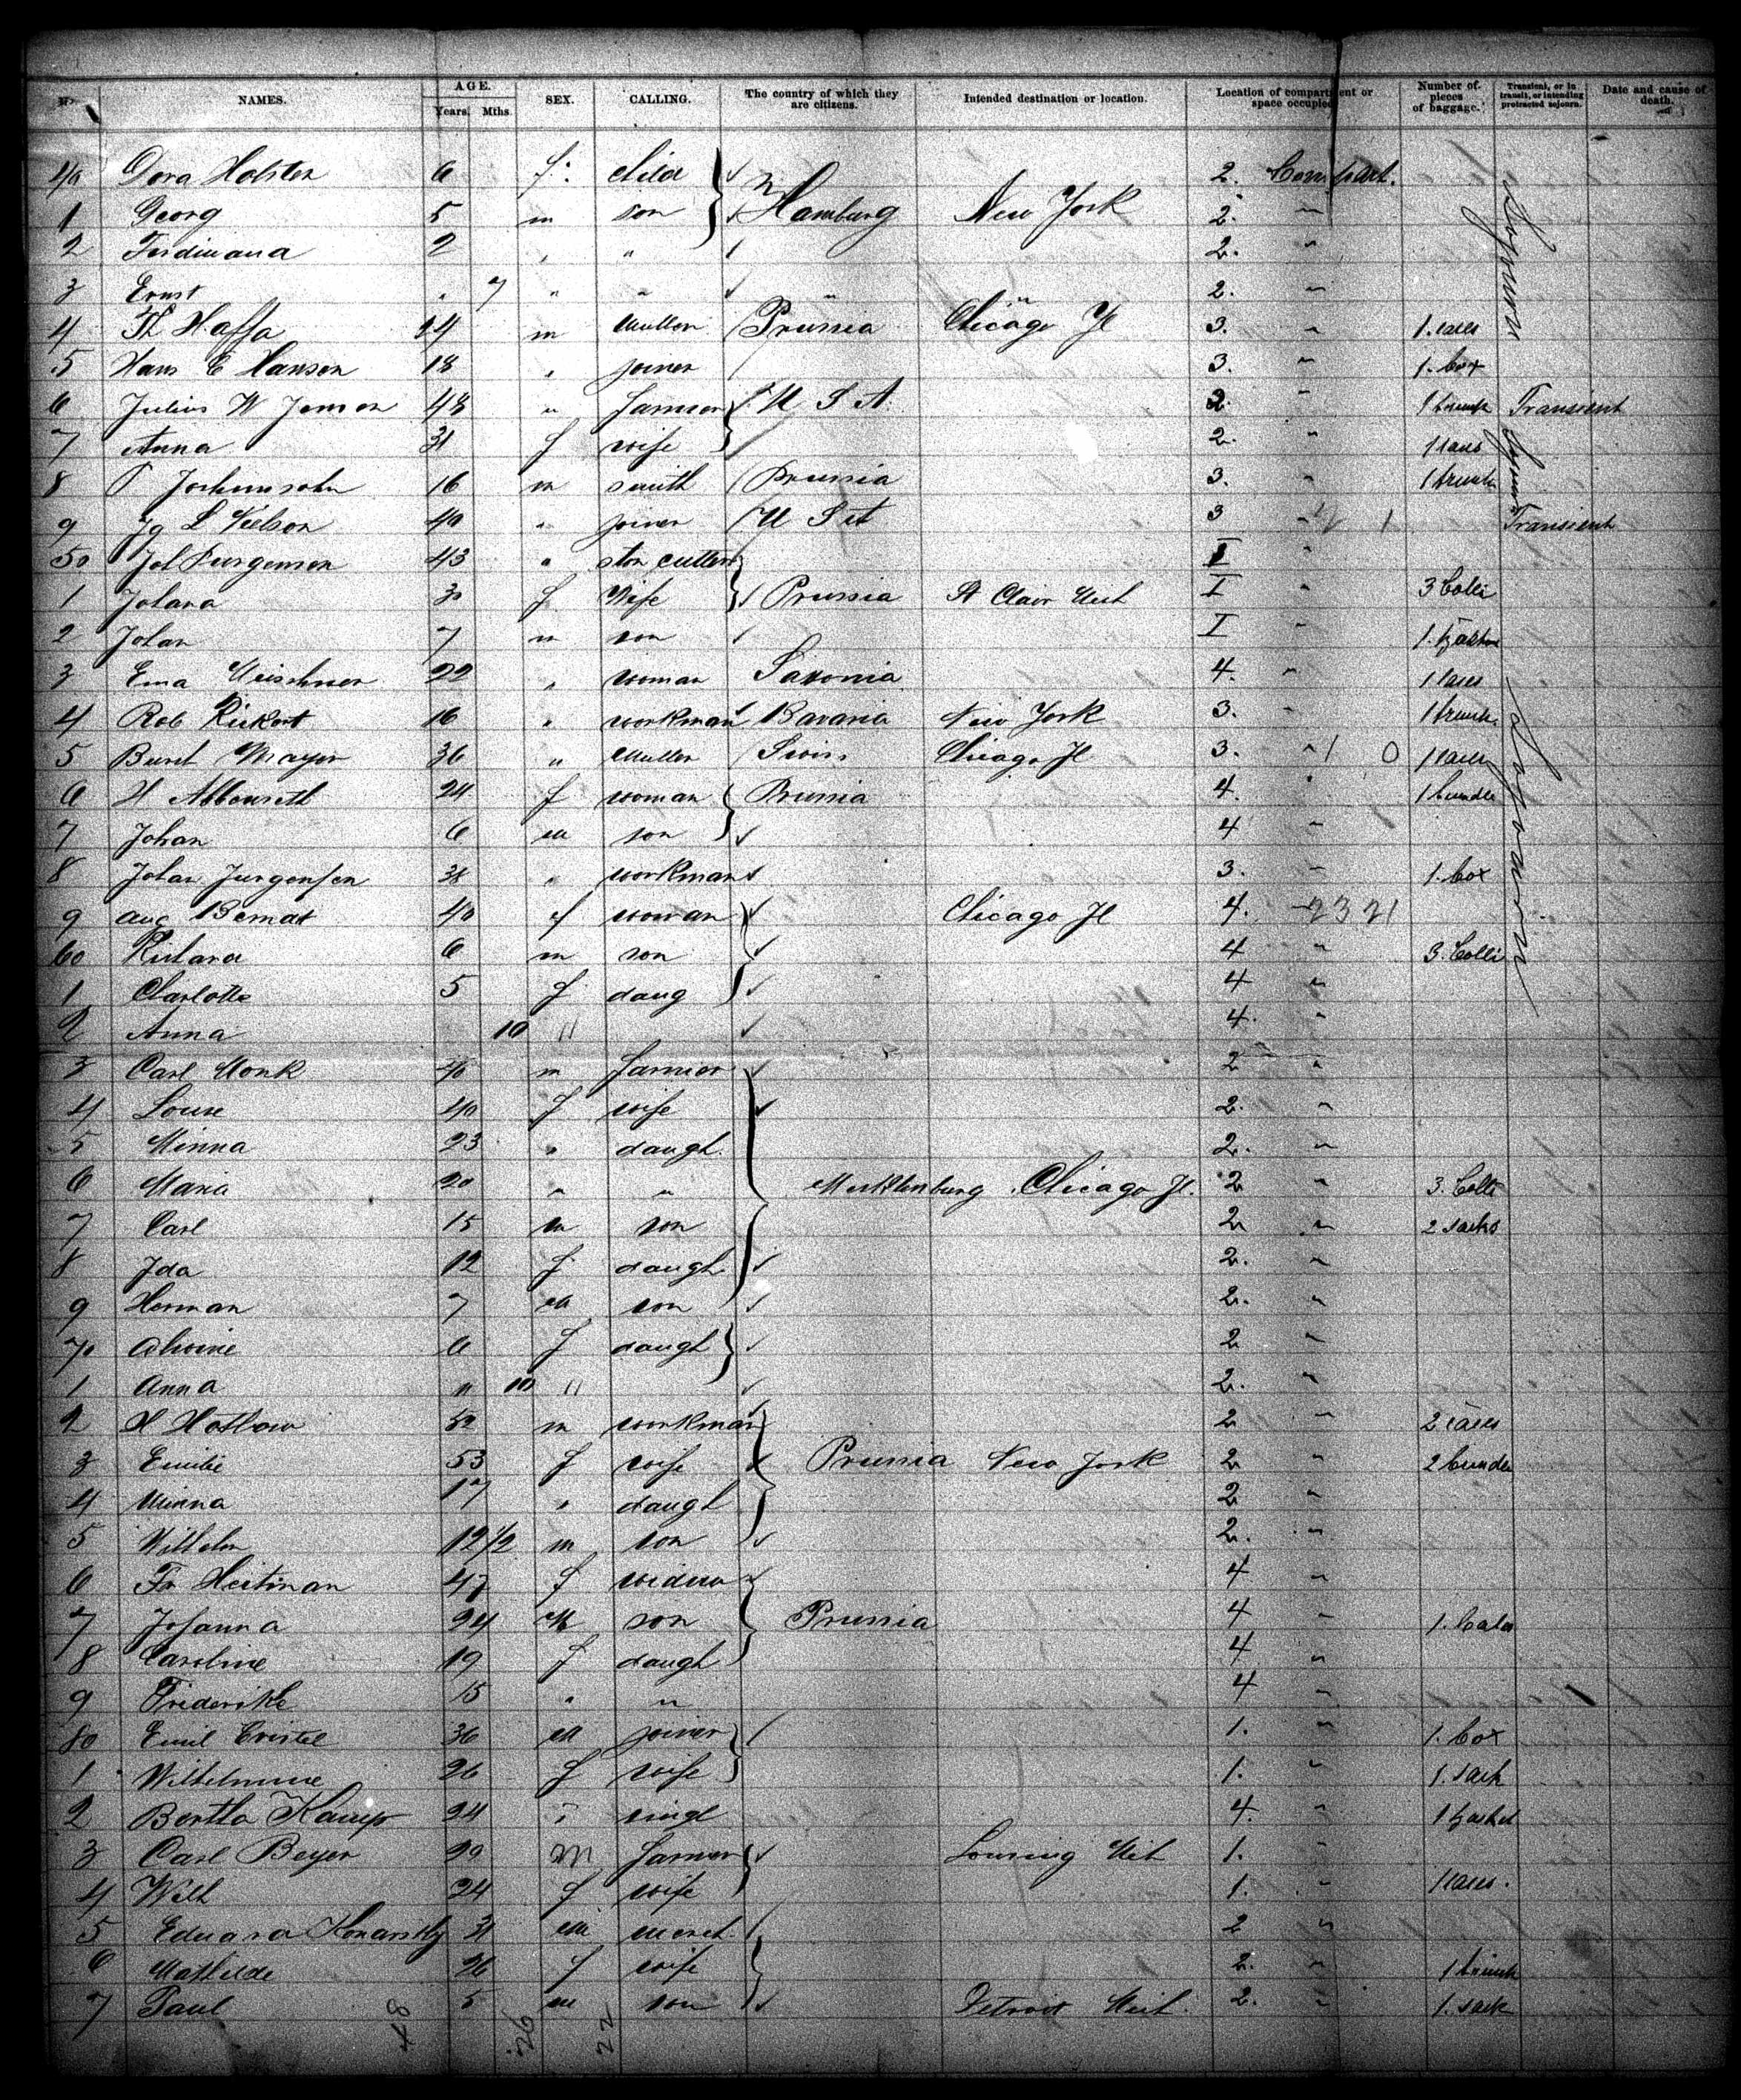 No. NAMES. AGE. Years. Mths. SEX. CALLING. The country of which they are citizens. Intended destination or location. Location of compartment or space occupied Number of pieces of baggage. Transient, or in transit, or intending protracted sojourn. Date and cause of death.
40 Dora Holsten 6 f. child 2. Compart.
1 Georg 5 m son Hamburg New York 2. "
2 Ferdinand 2 " " 2. "
3 Ernst " 7 " " " " 2. "
4 Th Haffa 24 m Muller Prussia Chicago Il 3. "
5 Hans C Hansen 18 " joiner 3. " 1. box
6 Julius W Jensen 48 " farmer U S A. 2. " 1 trunk Transient
7 Anna 31 f wife 2. "
8 16 m smith Prussia 3. " 1 trunk
9 Jg L Nielson 40 " joiner U S A 3 " Transient
50 Joh Jurgensen 43 " ston cutter I "
1 Johana 30 f Wife Prussia St Clair Mich I " 3 Colli
2 Johan 7 m son I "
3 Ema 22 " woman Saxonia 4. "
4 Rob Rickert 16 " workman Bavaria New York 3. " 1 trunk.
5 Mayer 36 " Muller Swiss Chicago Il 3. " 1 0
6 H 24 f woman Prussia 4. " 1 bundle
7 Johan 6 m son 4 "
8 Johan Jurgensen 38 " workman 3. " 1. box
9 Aug Bernat 40 f woman Chicago Il 4. " 2321
60 Richard 6 m son 4 " 3. Colli
1 Charlotte 5 f daug 4 "
2 Anna 10 " 4. "
3 Carl Monk 40 m farmer 2 "
4 Louise 40 f wife 2. "
5 Minna 23 " daugh. 2. "
6 Maria 20 " " Mecklenburg Chicago Il. 2 " 3. Colli
7 Carl 15 m son 2 " 2 sacks
8 Ida 12 f daugh 2. "
9 Herman 7 m son 2. "
70 Alwine 6 f daugh 2 "
1 Anna " 10 " 2. "
2 H 52 m workman 2 "
3 Emilie 53 f wife Prussia New York 2 "
4 Minna 17 " daugh 2 "
5 Wilhelm 12 1/2 m son 2. "
6 Fr Heitman 47 f widow 4 "
7 Johanna 24 M son Prussia 4 "
8 Caroline 19 f daugh 4 "
9 Friderike 15 " " 4 "
80 Emil 36 m joiner 1. " 1. box
1 Wilhelmine 26 f wife 1. " 1. sack
2 Bertha Kamp 24 " singl 4. "
3 Carl Beyer 29 m farmer 1. "
4 Wilh 24 f wife 1. "
5 Eduard 31 m merch. 2 "
6 Mathilde 26 f wife 2. " 1 trunk
7 Paul 5 m son Detroit Mich. 2. " 1. sack
48 26 22